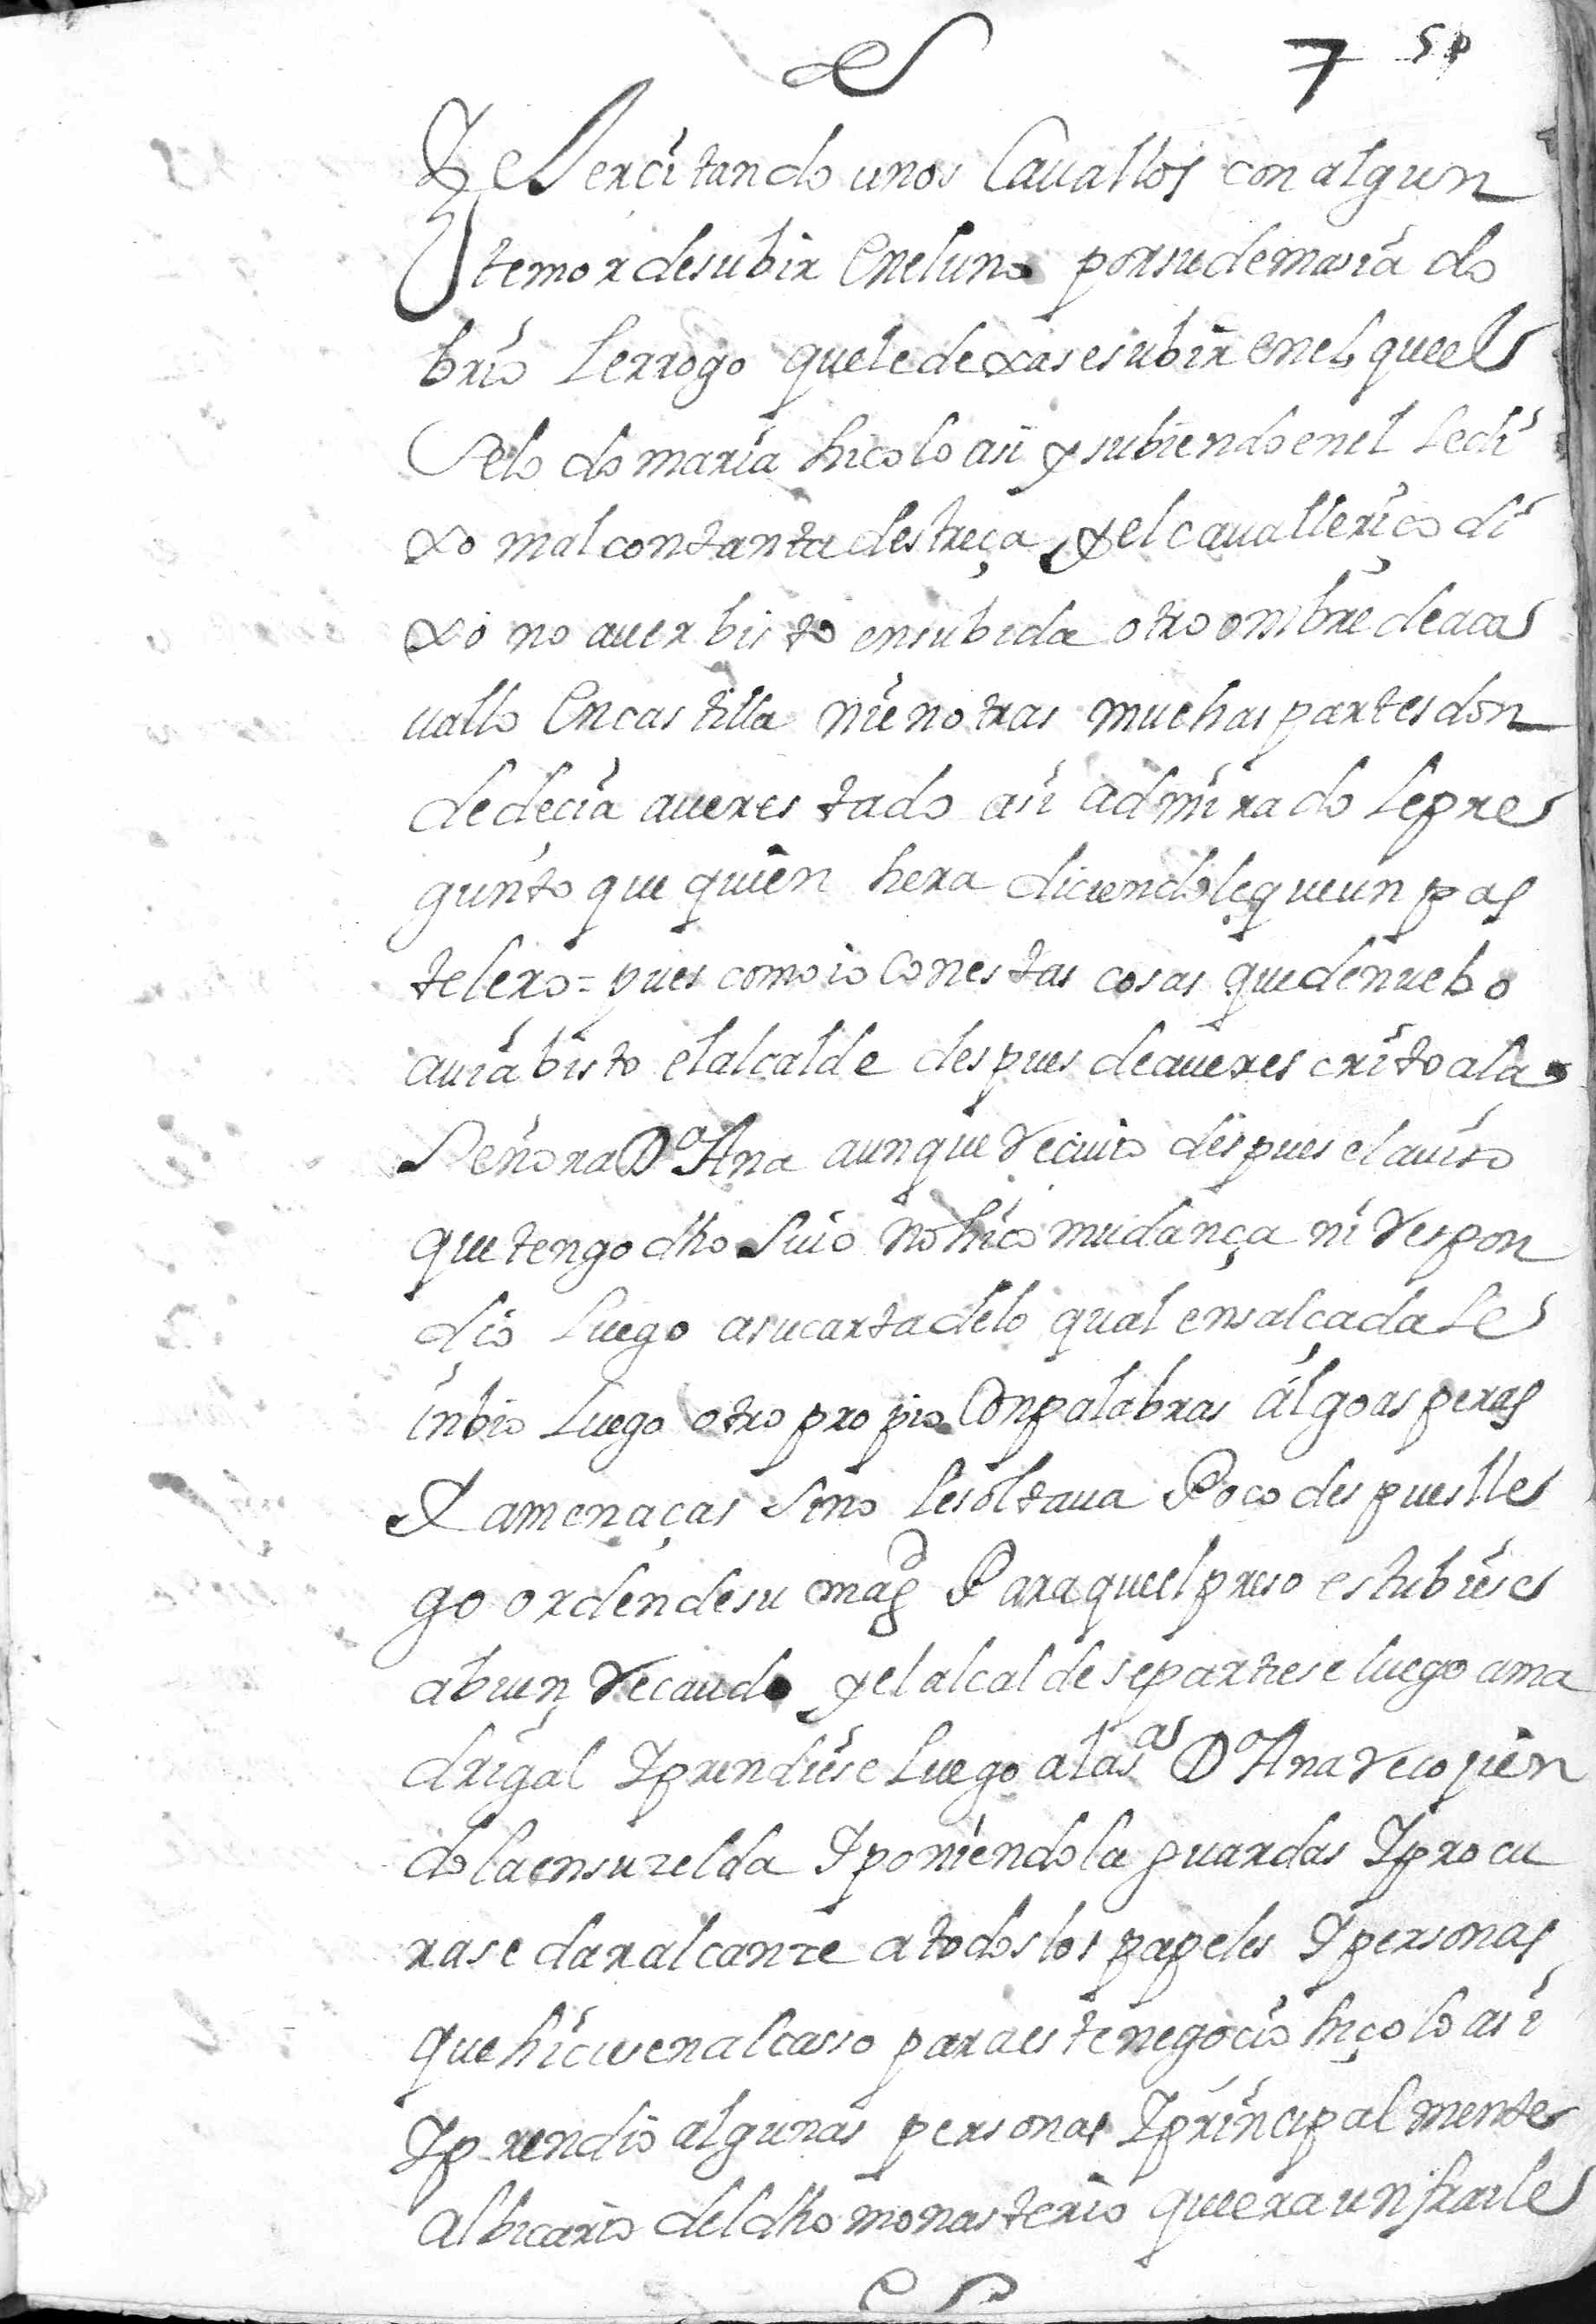 7 58
Y exercitando unos Cauallos con algun
temor de subir En el uno por su demasia do
brio le rrogo que le dexase subir en el que el
se lo domaria hiço lo asi y subiendo en el le di
xo mal con tanta destreça y el cauallerico di
xo no auer bisto en su bida otro onbre de a ca
uallo En castilla ni en otras muchas partes don
de decia auer estado asi admirado le pre
gunto que quien hera diciendole que un pas
telero = pues como io con estas cosas que de nuebo
auia bisto el alcalde despues de auer escrito a la
Señora Dª Ana aunque reciuio despues el auiso
que tengo dho suio no hiço mudança ni respon
dio luego a su carta de lo qual ensalçada le
inbio luego otro propio Con palabras algo asperas
Y amenaças sino le soltaua Poco despues lle
go orden de su magd Para que el preso estubiese
a buen recaudo y el alcalde se partiese luego a ma
drigal Y prendiese luego a la sas Dª Ana recojien
dola en su zelda Y poniendola guardas Y procu
rase dar alcanze a todos los papeles Y personas
que hiciesen al casso para este negocio hiço lo asi
Y prendio algunas personas Y principalmente
al bicario del dho monasterio que era un fraile